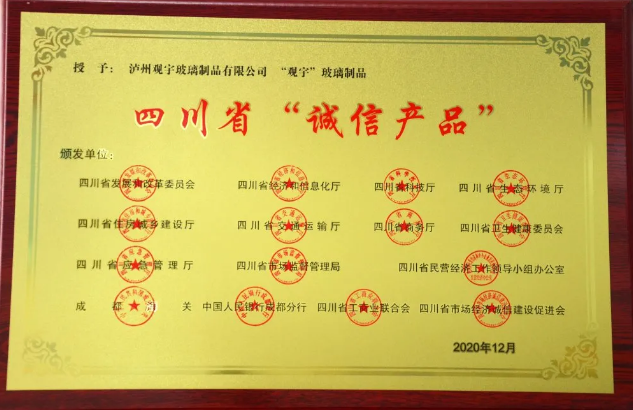 授 予： 泸州观宇玻璃制品有限公司 “观宇”玻璃制品
四川省“诚信产品”
颁发单位：
四川省发展和改革委员会 四川省经济和信息化厅 四川省科技厅 四川省生态环境厅
四川省住房城乡建设厅 四川省交通运输厅 四川省商务厅 四川省卫生健康委员会
四川省应急管理厅 四川省市场监督管理局 四川省民营经济工作领导小组办公室
成都海关 中国人民银行成都分行 四川省工商业联合会 四川省市场经济诚信建设促进会
2020年12月